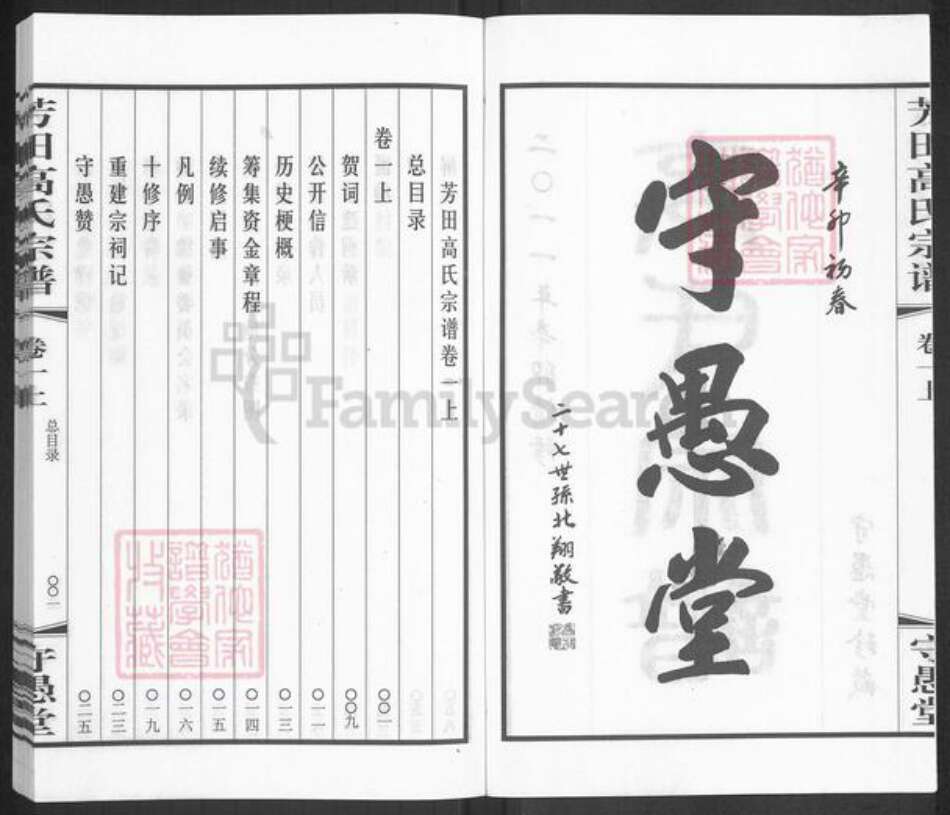 辛卯初春
守愚堂
二十七世孫北翔敬書
芳田高氏宗谱
卷一上
守愚堂
芳田高氏宗谱卷一上
总目录
卷一上 〇〇一
贺词 〇〇九
公开信 〇一一
历史梗概 〇一三
筹集资金章程 〇一四
续修启事 〇一五
凡例 〇一六
十修序 〇一九
重建宗祠记 〇二三
守愚赞 〇二五
芳田高氏宗谱
卷一上
总目录
〇〇一
守愚堂
FamilySearch